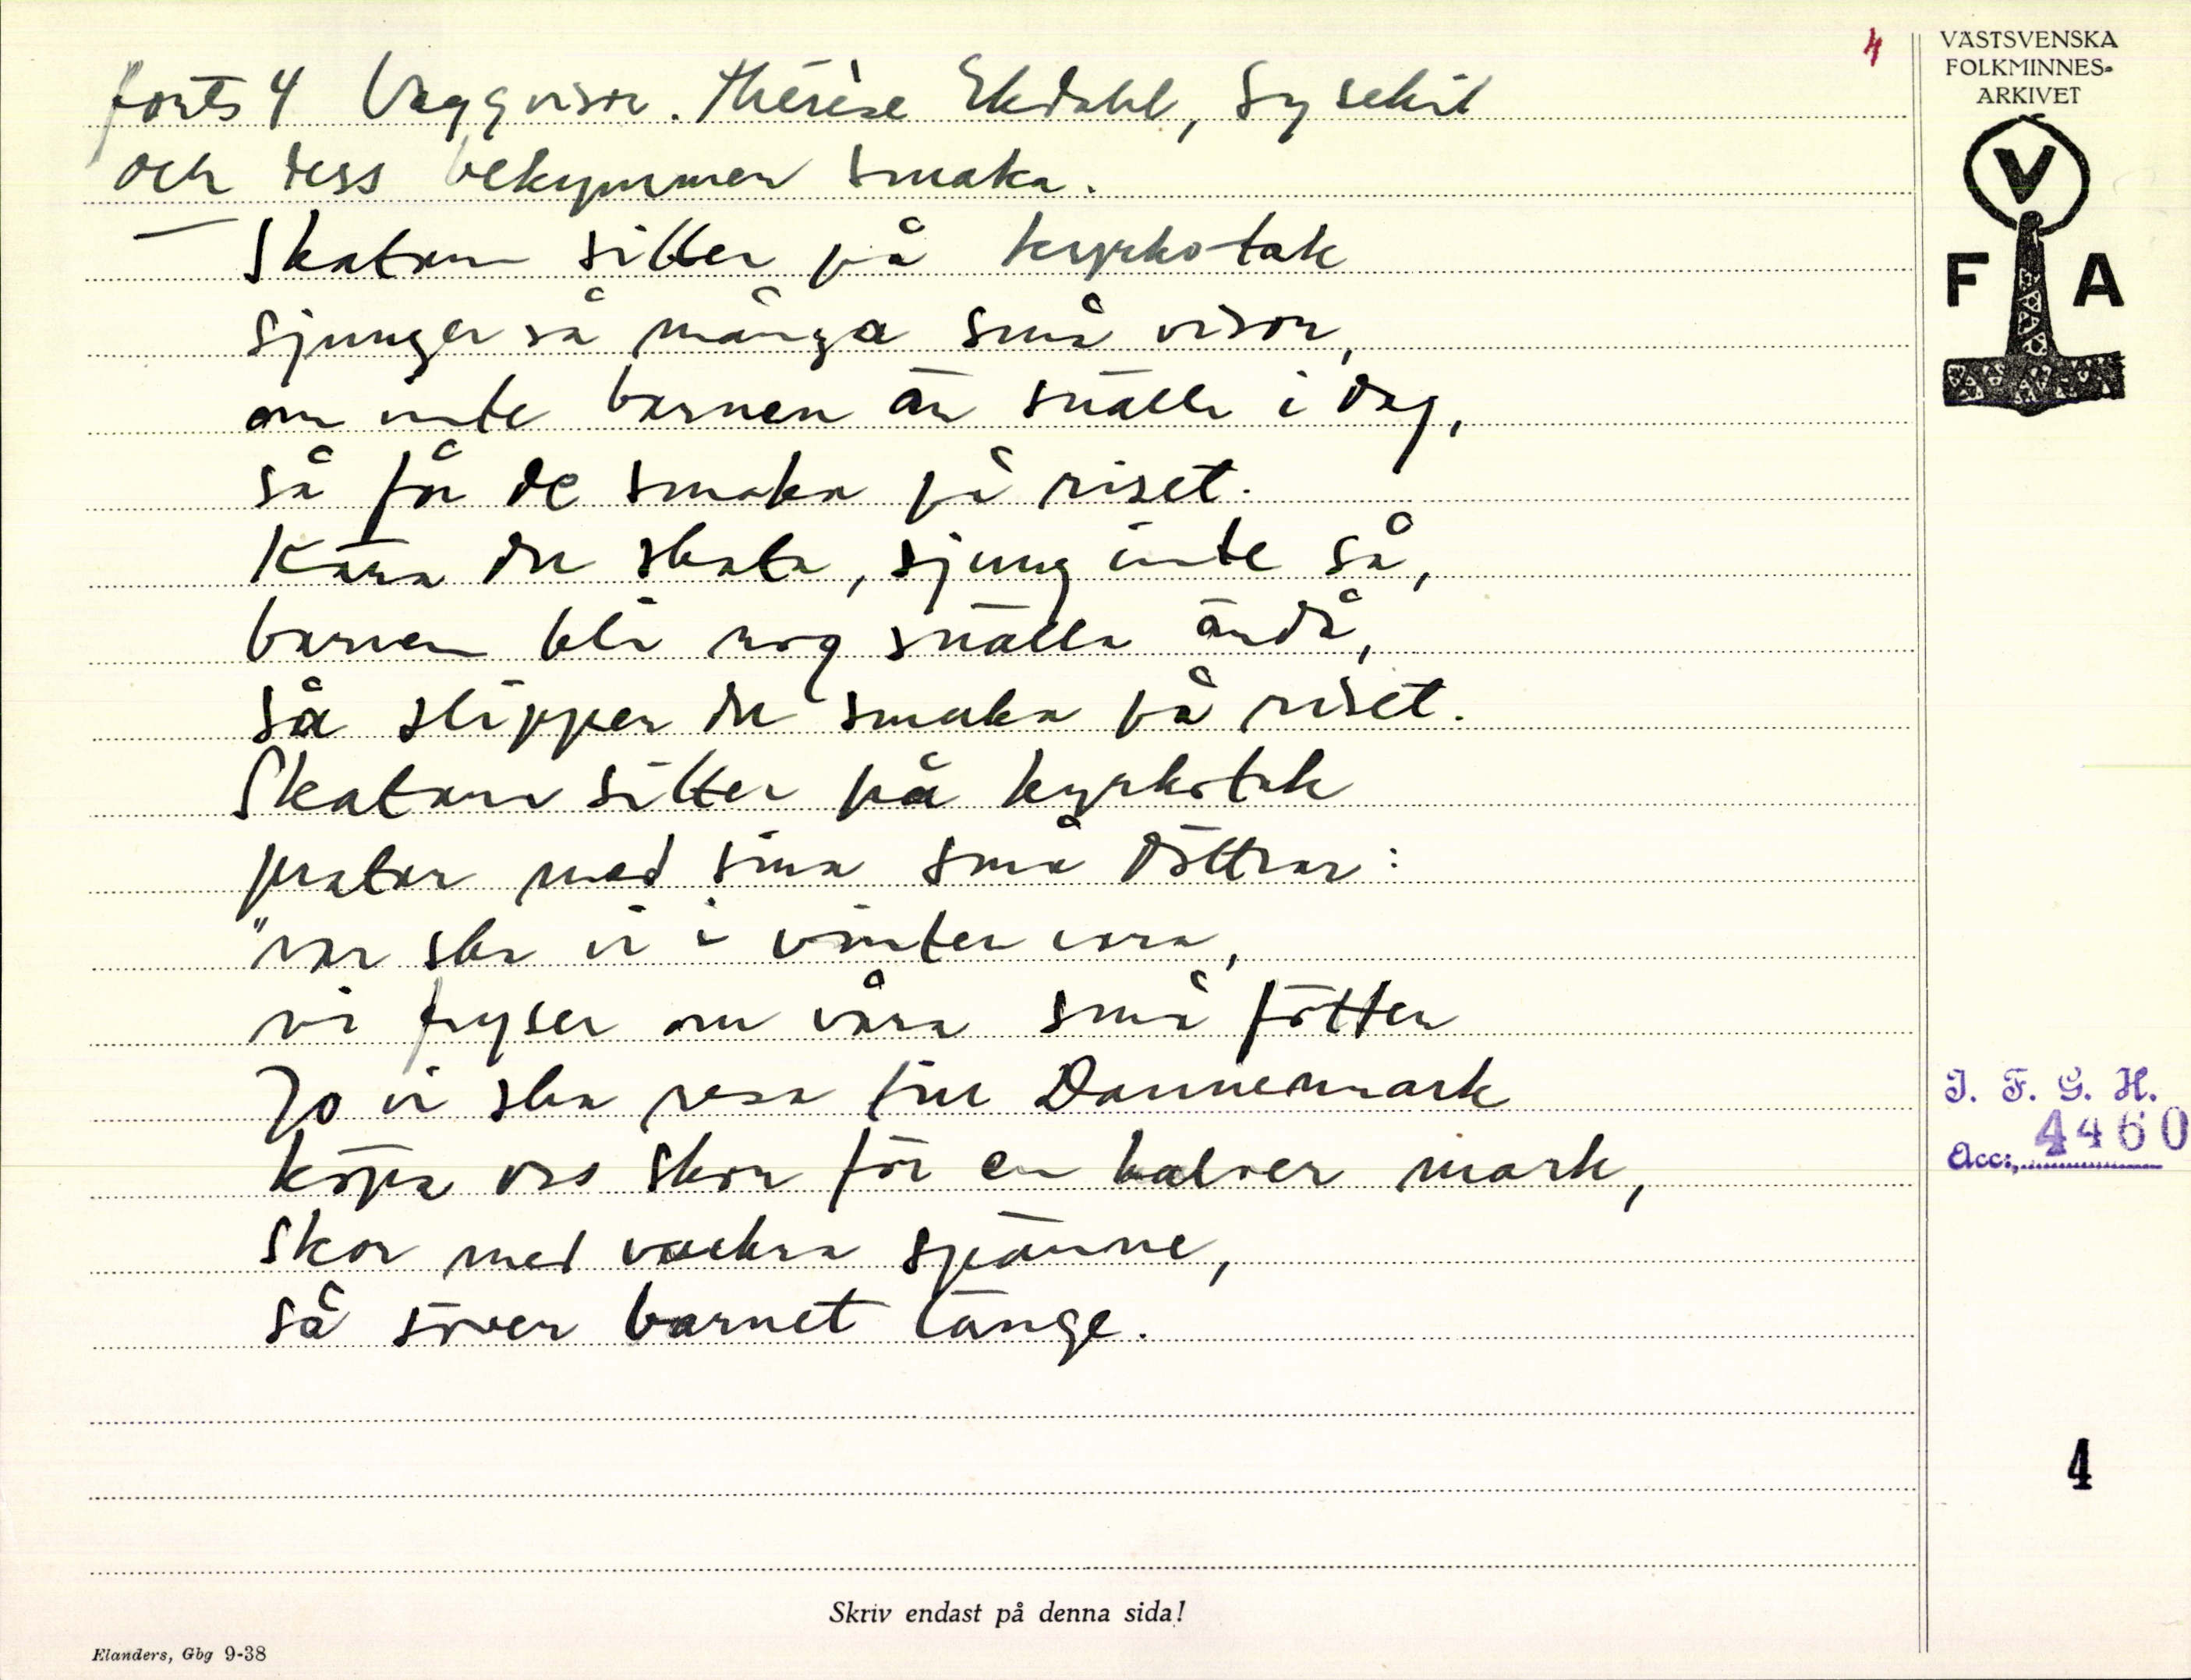 4
VÄSTSVENSKA
FOLKMINNES-
ARKIVET
V
F A
forts 4 Vaggvisor. Thérèse Ekdahl, Lysekil
och dess bekymmer smaka.
— Skatan sitter på kyrkotak
sjunger så många små visor,
om inte barnen är snälla i dag,
så får de smaka på riset.
Kära du skata, sjung inte så,
barnen bli nog snälla ändå,
så slipper du smaka på riset.
Skatan sitter på kyrkotak
pratar med sina små döttrar:
"var ska vi i vinter vara,
vi fryser om våra små fötter
Jo vi ska resa till Dannemark
köpa oss skor för en halver mark,
skor med vackra spänne,
så sover barnet länge.
I. F. G. H.
Acc. 4460
4
Skriv endast på denna sida!
Elanders, Gbg 9-38